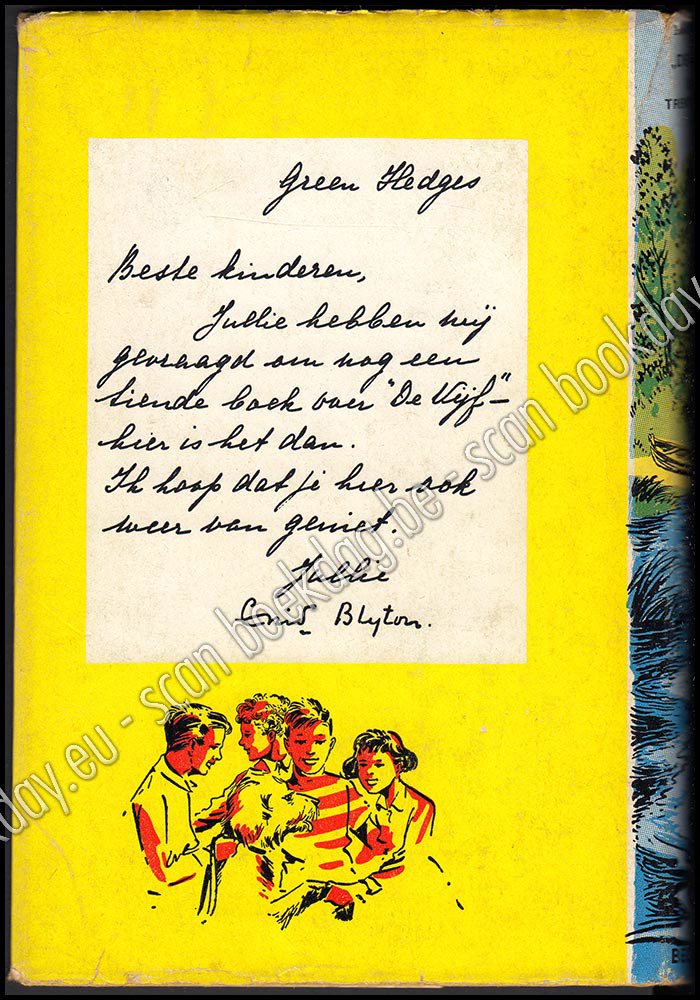 Green Hedges
Beste kinderen,
Jullie hebben mij
gevraagd om nog een
tiende boek over "De Vijf"-
hier is het dan.
Ik hoop dat je hier ook
weer van geniet.
Jullie
Enid Blyton.
scan bookday.eu - scan bookdag.be - scan bookday.